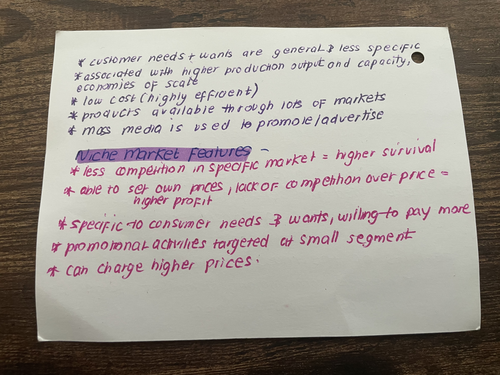 * customer needs + wants are general & less specific
* associated with higher production output and capacity,
economies of scale
* low cost (highly efficient)
* products available through lots of markets
* mass media is used to promote/advertise
Niche Market Features -
* less competition in specific market = higher survival
* able to set own prices, lack of competition over price =
higher profit
* specific to consumer needs & wants, willing to pay more
* promotional activities targeted at small segment
* can charge higher prices.